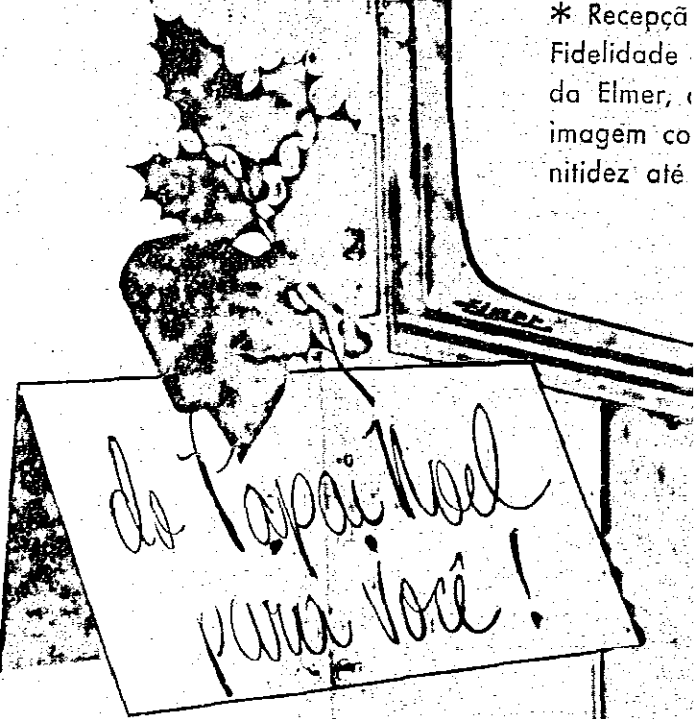 * Recepçã
Fidelidade
da Elmer,
imagem co
nitidez até
Elmer
do Papai Noel
para você!